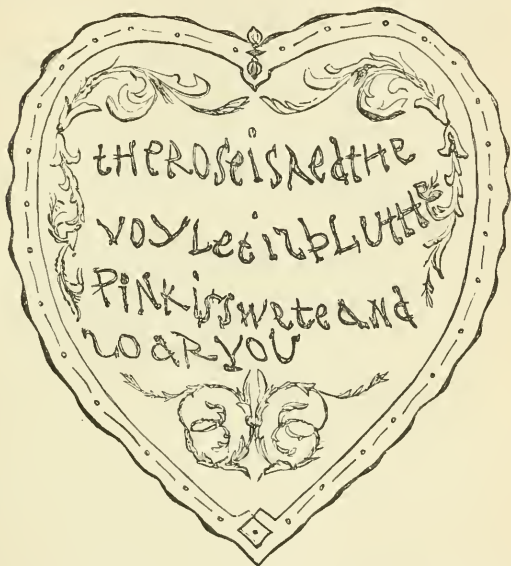 tHeROSeisRedtHe
VOYLetizbLUtHe
PiNKissweteaNd
ZOaRYOU